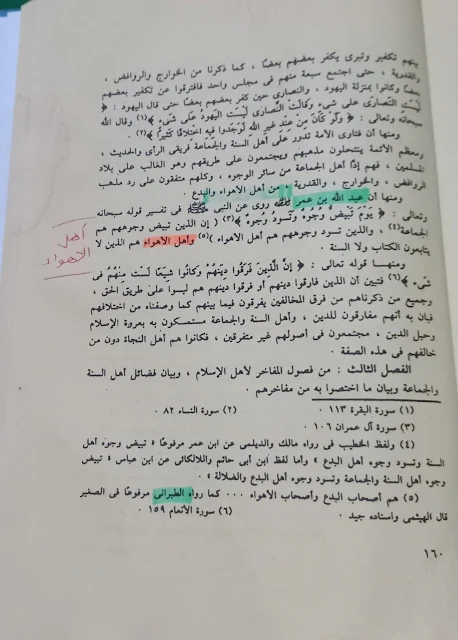 بينهم تكفير وتبرى يكفر بعضهم بعضًا ، كما ذكرنا من الخوارج والروافض ،
والقدرية ، حتى اجتمع سبعة منهم فى مجلس واحد فافترقوا عن تكفير بعضهم
بعضا وكانوا بمنزلة اليهود ، والنصارى حين كفر بعضهم بعضًا حتى قال اليهود : ﴿
لَيْسَتِ النَّصَارَى عَلَى شَىءٍ وَقَالَتِ النَّصَارَى لَيْسَتِ الْيَهُودُ عَلَى شَىْءٍ ﴾(١) وقال الله
سبحانه وتعالى : ﴿ وَلَوْ كَانَ مِنْ عِنْدِ غَيرِ اللَّهِ لَوَجَدُوا فِيهِ اخْتِلَافًا كَثِيرًا ﴾(٢) .
ومنها أن فتاوى الأمة تدور على أهل السنة والجماعة فريقى الرأى والحديث ،
ومعظم الأئمة ينتحلون مذهبهم ويجتمعون على طريقهم وهو الغالب على بلاد
المسلمين ، فهم إذًا أهل الجماعة من سائر الوجوه ، وكلهم متفقون على رد مذهب
الروافض ، والخوارج ، والقدرية ، من أهل الأهواء والبدع .
ومنها أن عبد الله بن عمر روى عن النبى ﷺ فى تفسير قوله سبحانه
وتعالى : ﴿ يَوْمَ تَبْيَضُّ وُجُوهٌ وَتَسْوَدُّ وُجُوهٌ ﴾(٣) ( إن الذين تبيض وجوههم هم
الجماعة(٤) ، والذين تسود وجوههم هم أهل الأهواء )(٥) وأهل الأهواء هم الذين لا
يتابعون الكتاب ولا السنة .
أهل
الأهواء
ومنهـا قوله تعالى : ﴿ إِنَّ الَّذِينَ فَرَّقُوا دِينَهُمْ وَكَانُوا شِيَعًا لَسْتَ مِنْهُمْ فِى
شَىءٍ ﴾(٦) فتبين أن الذين فارقوا دينهم أو فرقوا دينهم هم ليسوا على طريق الحق ،
وجميع من ذكرناهم من فرق المخالفين يفرقون فيما بينهم كما وصفناه من اختلافهم
فبان به أنهم مفارقون للدين ، وأهل السنة والجماعة مستمسكون به بعروة الإسلام
وحبل الدين ، مجتمعون فى أصولهم غير متفرقين ، فكانوا هم أهل النجاة دون من
خالفهم فى هذه الصفة .
الفصل الثالث : من فصول المفاخر لأهل الإسلام ، وبيان فضائل أهل السنة
والجماعة وبيان ما اختصوا به من مفاخرهم .
(١) سورة البقرة ١١٣ . (٢) سورة النساء ٨٢ .
(٣) سورة آل عمران ١٠٦ .
(٤) ولفظ الخطيب فى رواه مالك والديلمى عن ابن عمر مرفوعًا « تبيض وجوه أهل
السنة وتسود وجوه أهل البدع » وأما لفظ ابن أبى حاتم واللالكائى عن ابن عباس « تبيض
وجوه أهل السنة والجماعة وتسود وجوه أهل البدع والضلالة » .
(٥) هم أصحاب البدع وأصحاب الأهواء ... كما رواه الطبرانى مرفوعًا فى الصغير
قال الهيثمى واسناده جيد . (٦) سورة الأنعام ١٥٩ .
١٦٠